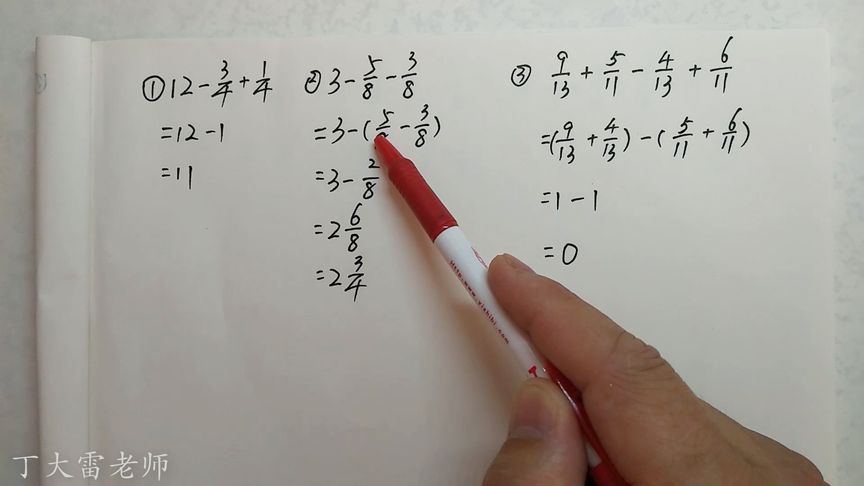 ① 12 - 3/4 + 1/4
= 12 - 1
= 11
② 3 - 5/8 - 3/8
= 3 - (5/ - 3/8)
= 3 - 2/8
= 2 6/8
= 2 3/4
③ 9/13 + 5/11 - 4/13 + 6/11
= (9/13 + 4/13) - (5/11 + 6/11)
= 1 - 1
= 0
丁大雷老师